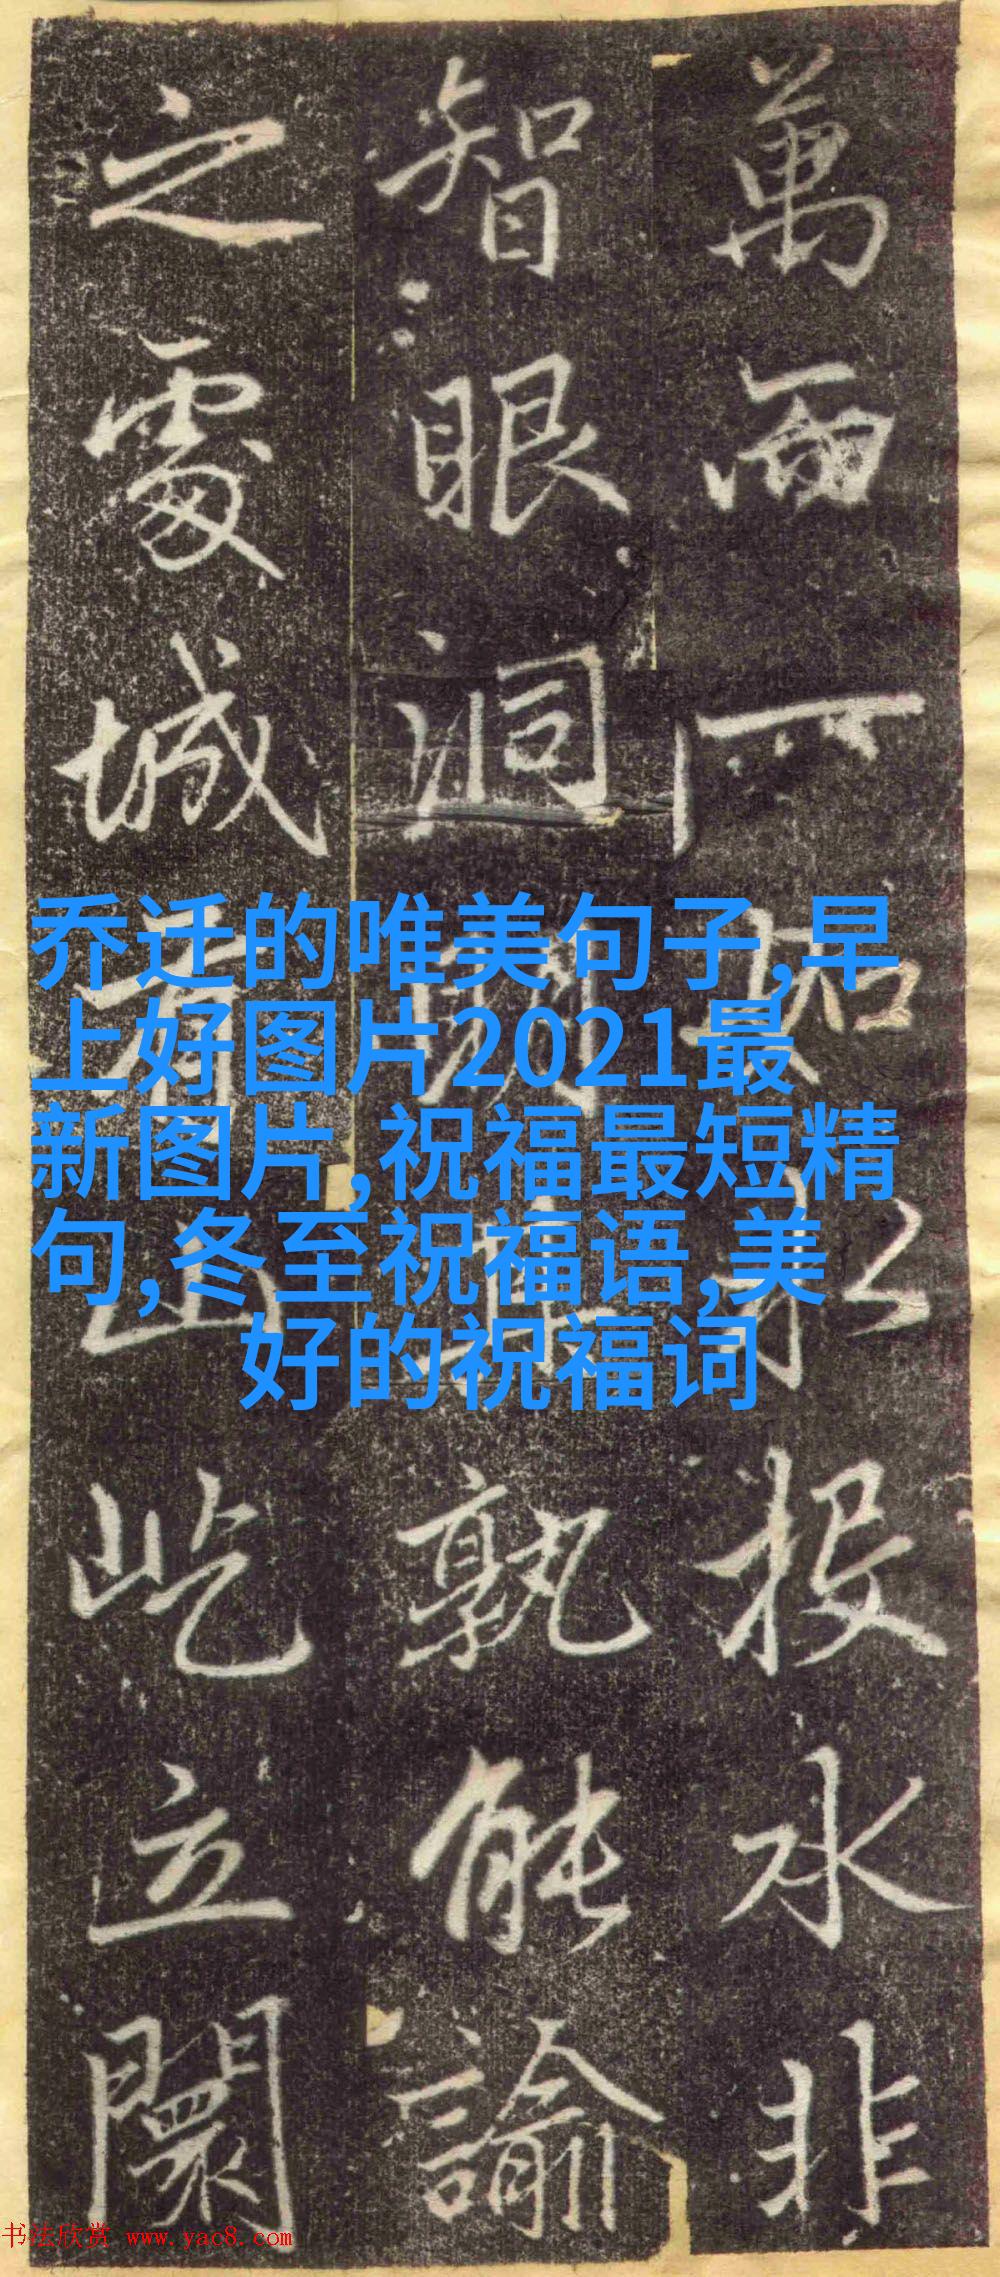 萬而一如水投水非
智眼洞其孰能諭
之處城有山屹立闤
乔迁的唯美句子,早
上好图片2021最
新图片,祝福最短精
句,冬至祝福语,美
好的祝福词
书法欣赏 www.yac8.com